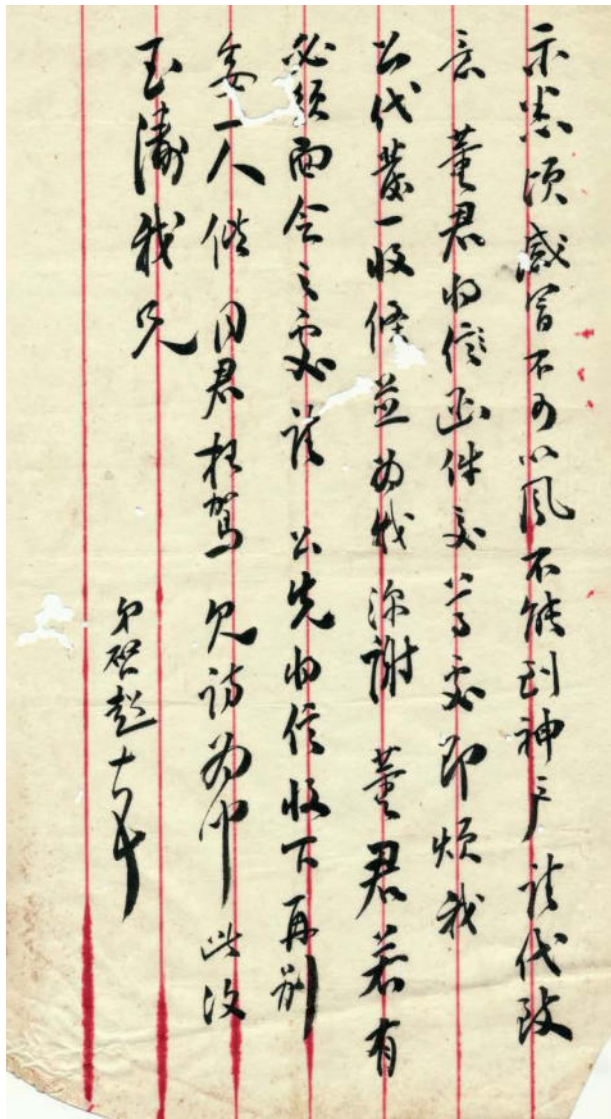 示悉頃感冒不可以風不能到神戶請代致
意 董君如信函件交尊處即煩我
公代發一收條並為我深謝 董君若有
必須面會之處請 公先將信收下再別
委一人偕 同君枉駕 見訪為叩 此復
玉濤我兄
弟啓超 十八